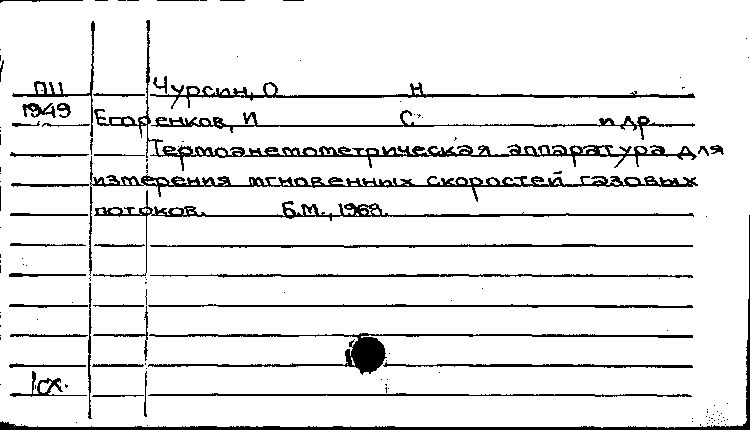 П11 Чурсин, О Н
1949 Егоренков, И С и др
Термоанемометрическая аппаратура для
измерения мгновенных скоростей газовых
потоков. Б.М., 1968.
1сх.